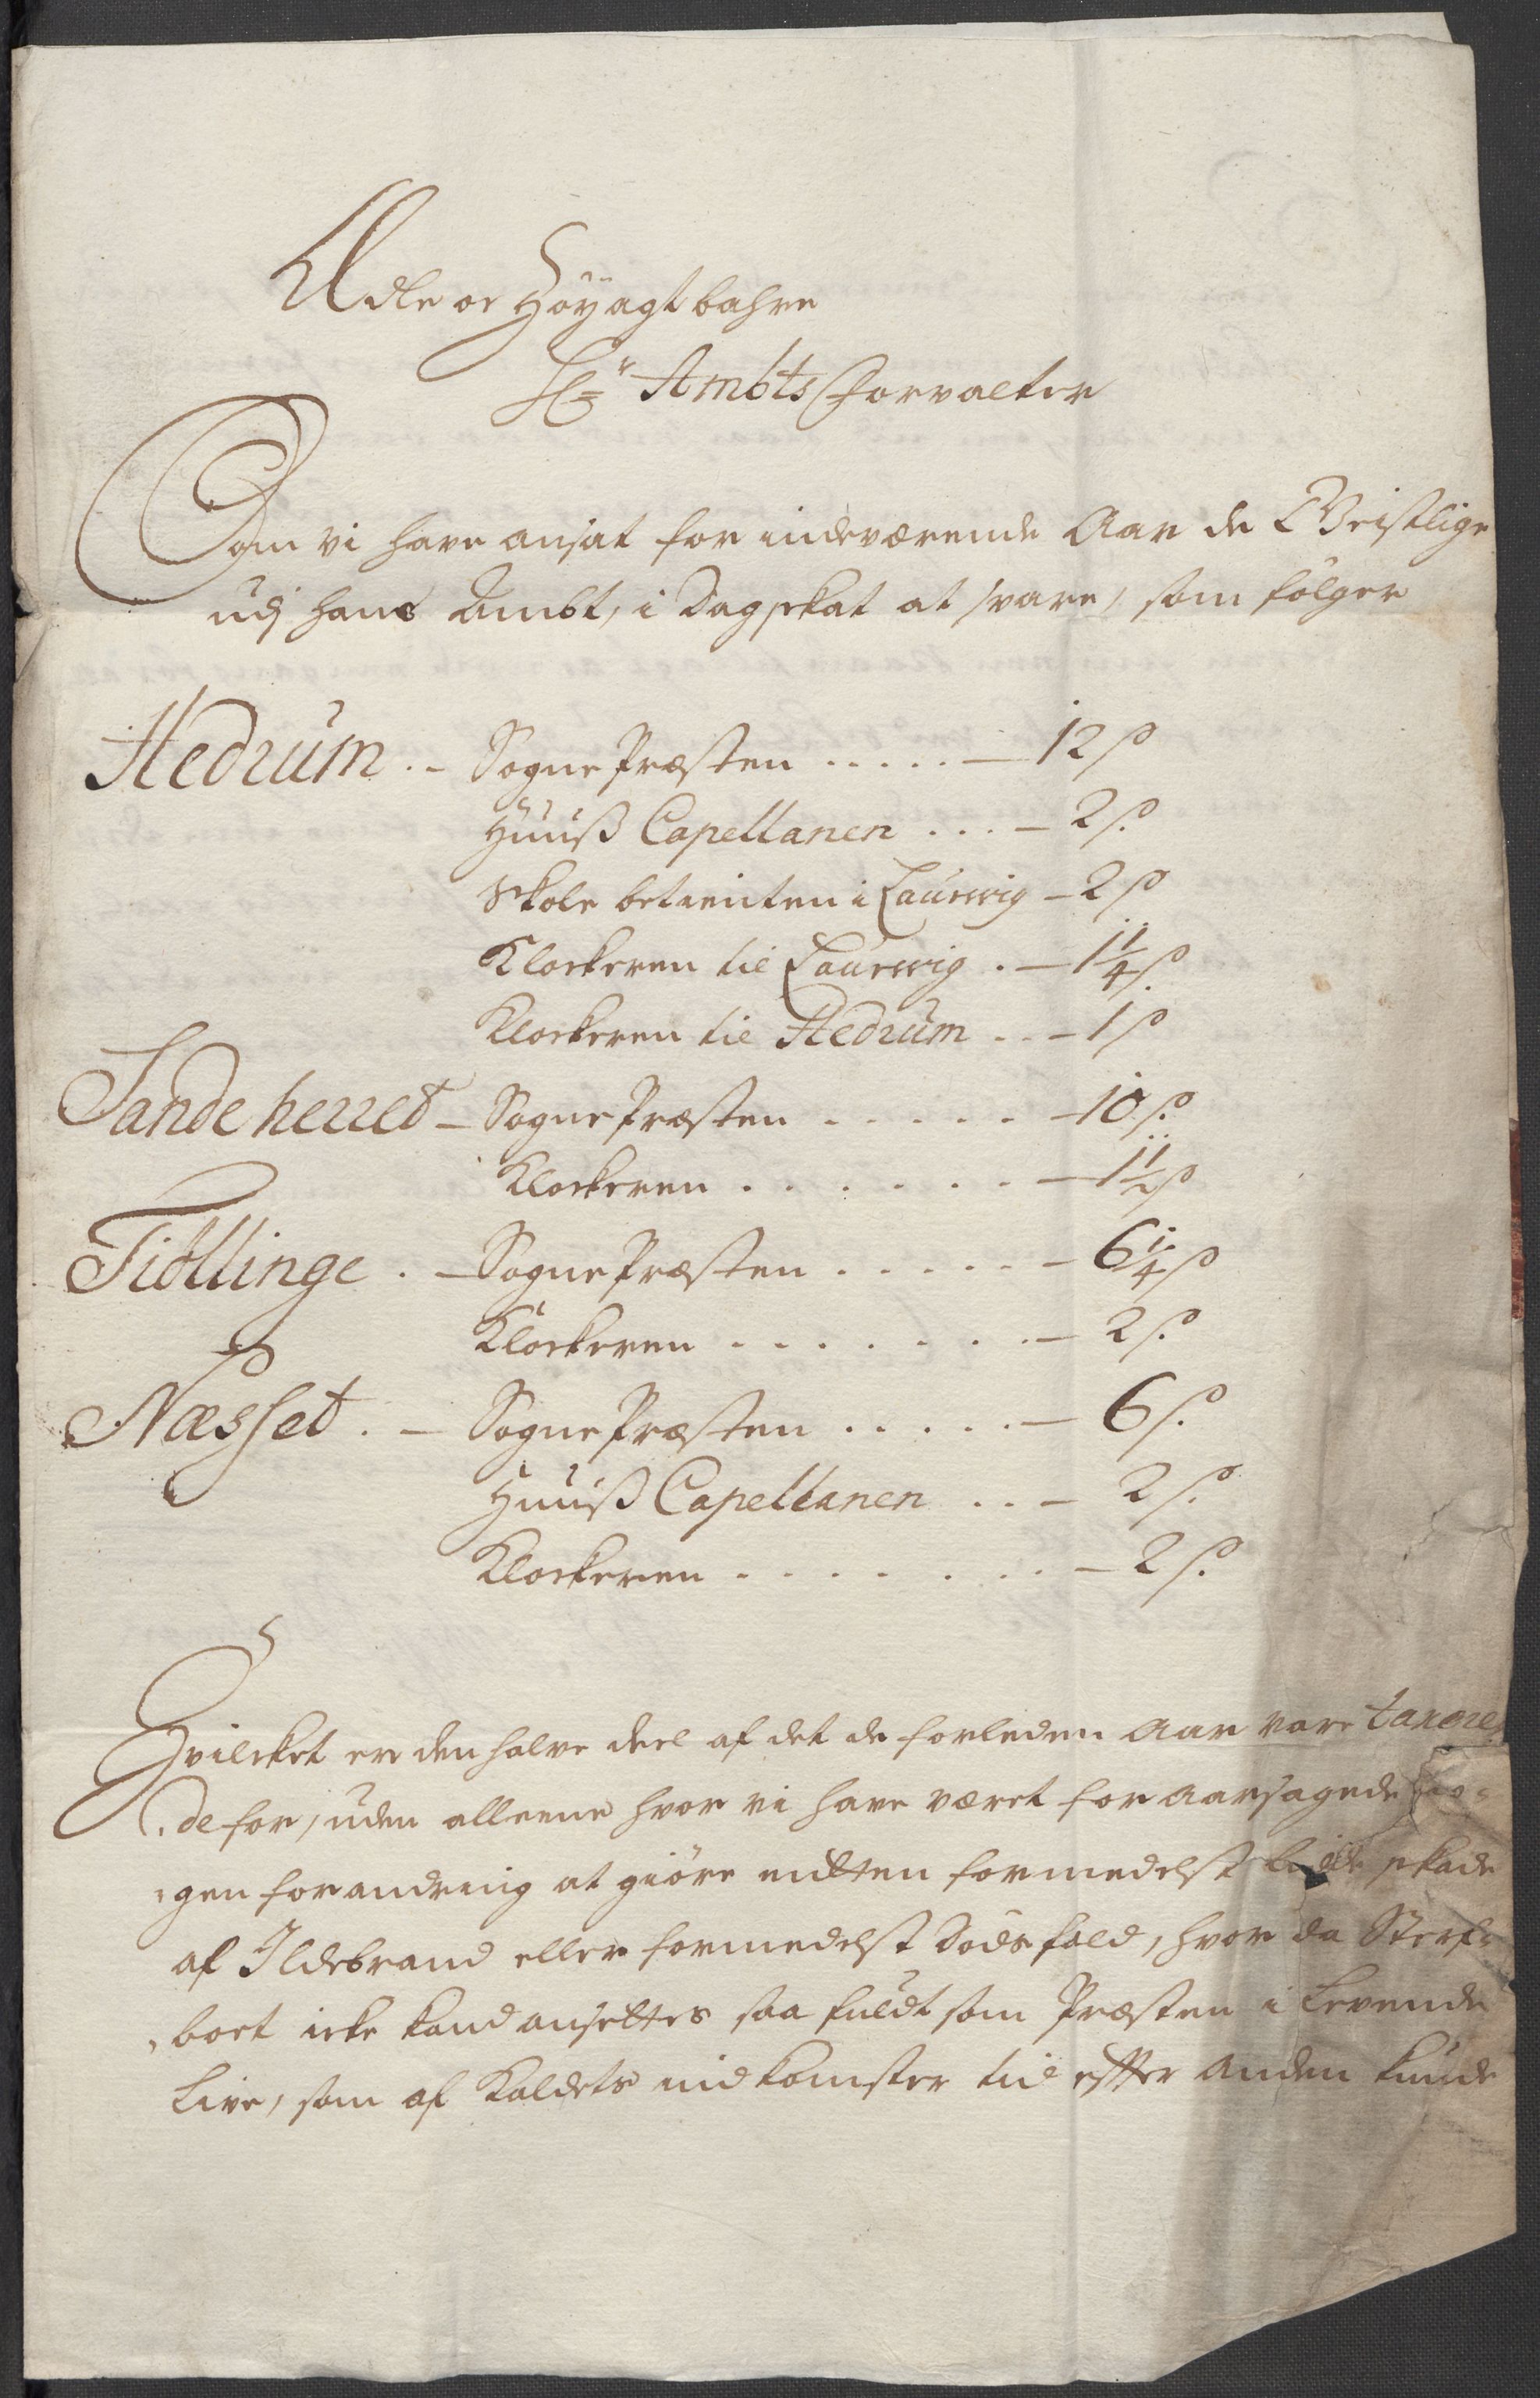 Ædle oc Høyagtbahre
Hr Ambts Forvalter
Som vi have ansat for indeværende Aar de Geistlige
udj hans Ambt, i Dagskat at svare, som følger
Hedrum . - Sogne Præsten . . . . . — 12 ß
Huuß Capellanen . . . — 2 ß.
Skole betienten i Laurwig — 2 ß
Klockeren til Laurwig . — 1 1/4 ß.
Klockeren til Hedrum . . — 1 ß
Sande herret — Sogne Præsten . . . . . — 10 ß.
Klockeren . . . . . . — 1 1/2 ß
Tiøllinge . — Sogne Præsten . . . . . — 6 1/4 ß
Klockeren . . . . . . . — 2 ß.
Næsset . — Sogne Præsten . . . . . — 6 ß.
Huuß Capellanen . . — 2 ß.
Klockeren . . . . . . . — 2 ß.
Hvilcket er den halve deel af det de forleden Aar vare taxere-
de for, uden alleene hvor vi have været foraarsagede no-
gen forandring at giøre entten formedelst skade
af Ildebrand eller formedelst Dødsfald, hvor da Sterf-
boet icke kand ansettes saa fuldt som Præsten i Levende
Live, som af Kaldets indkomster tid effter anden kunde